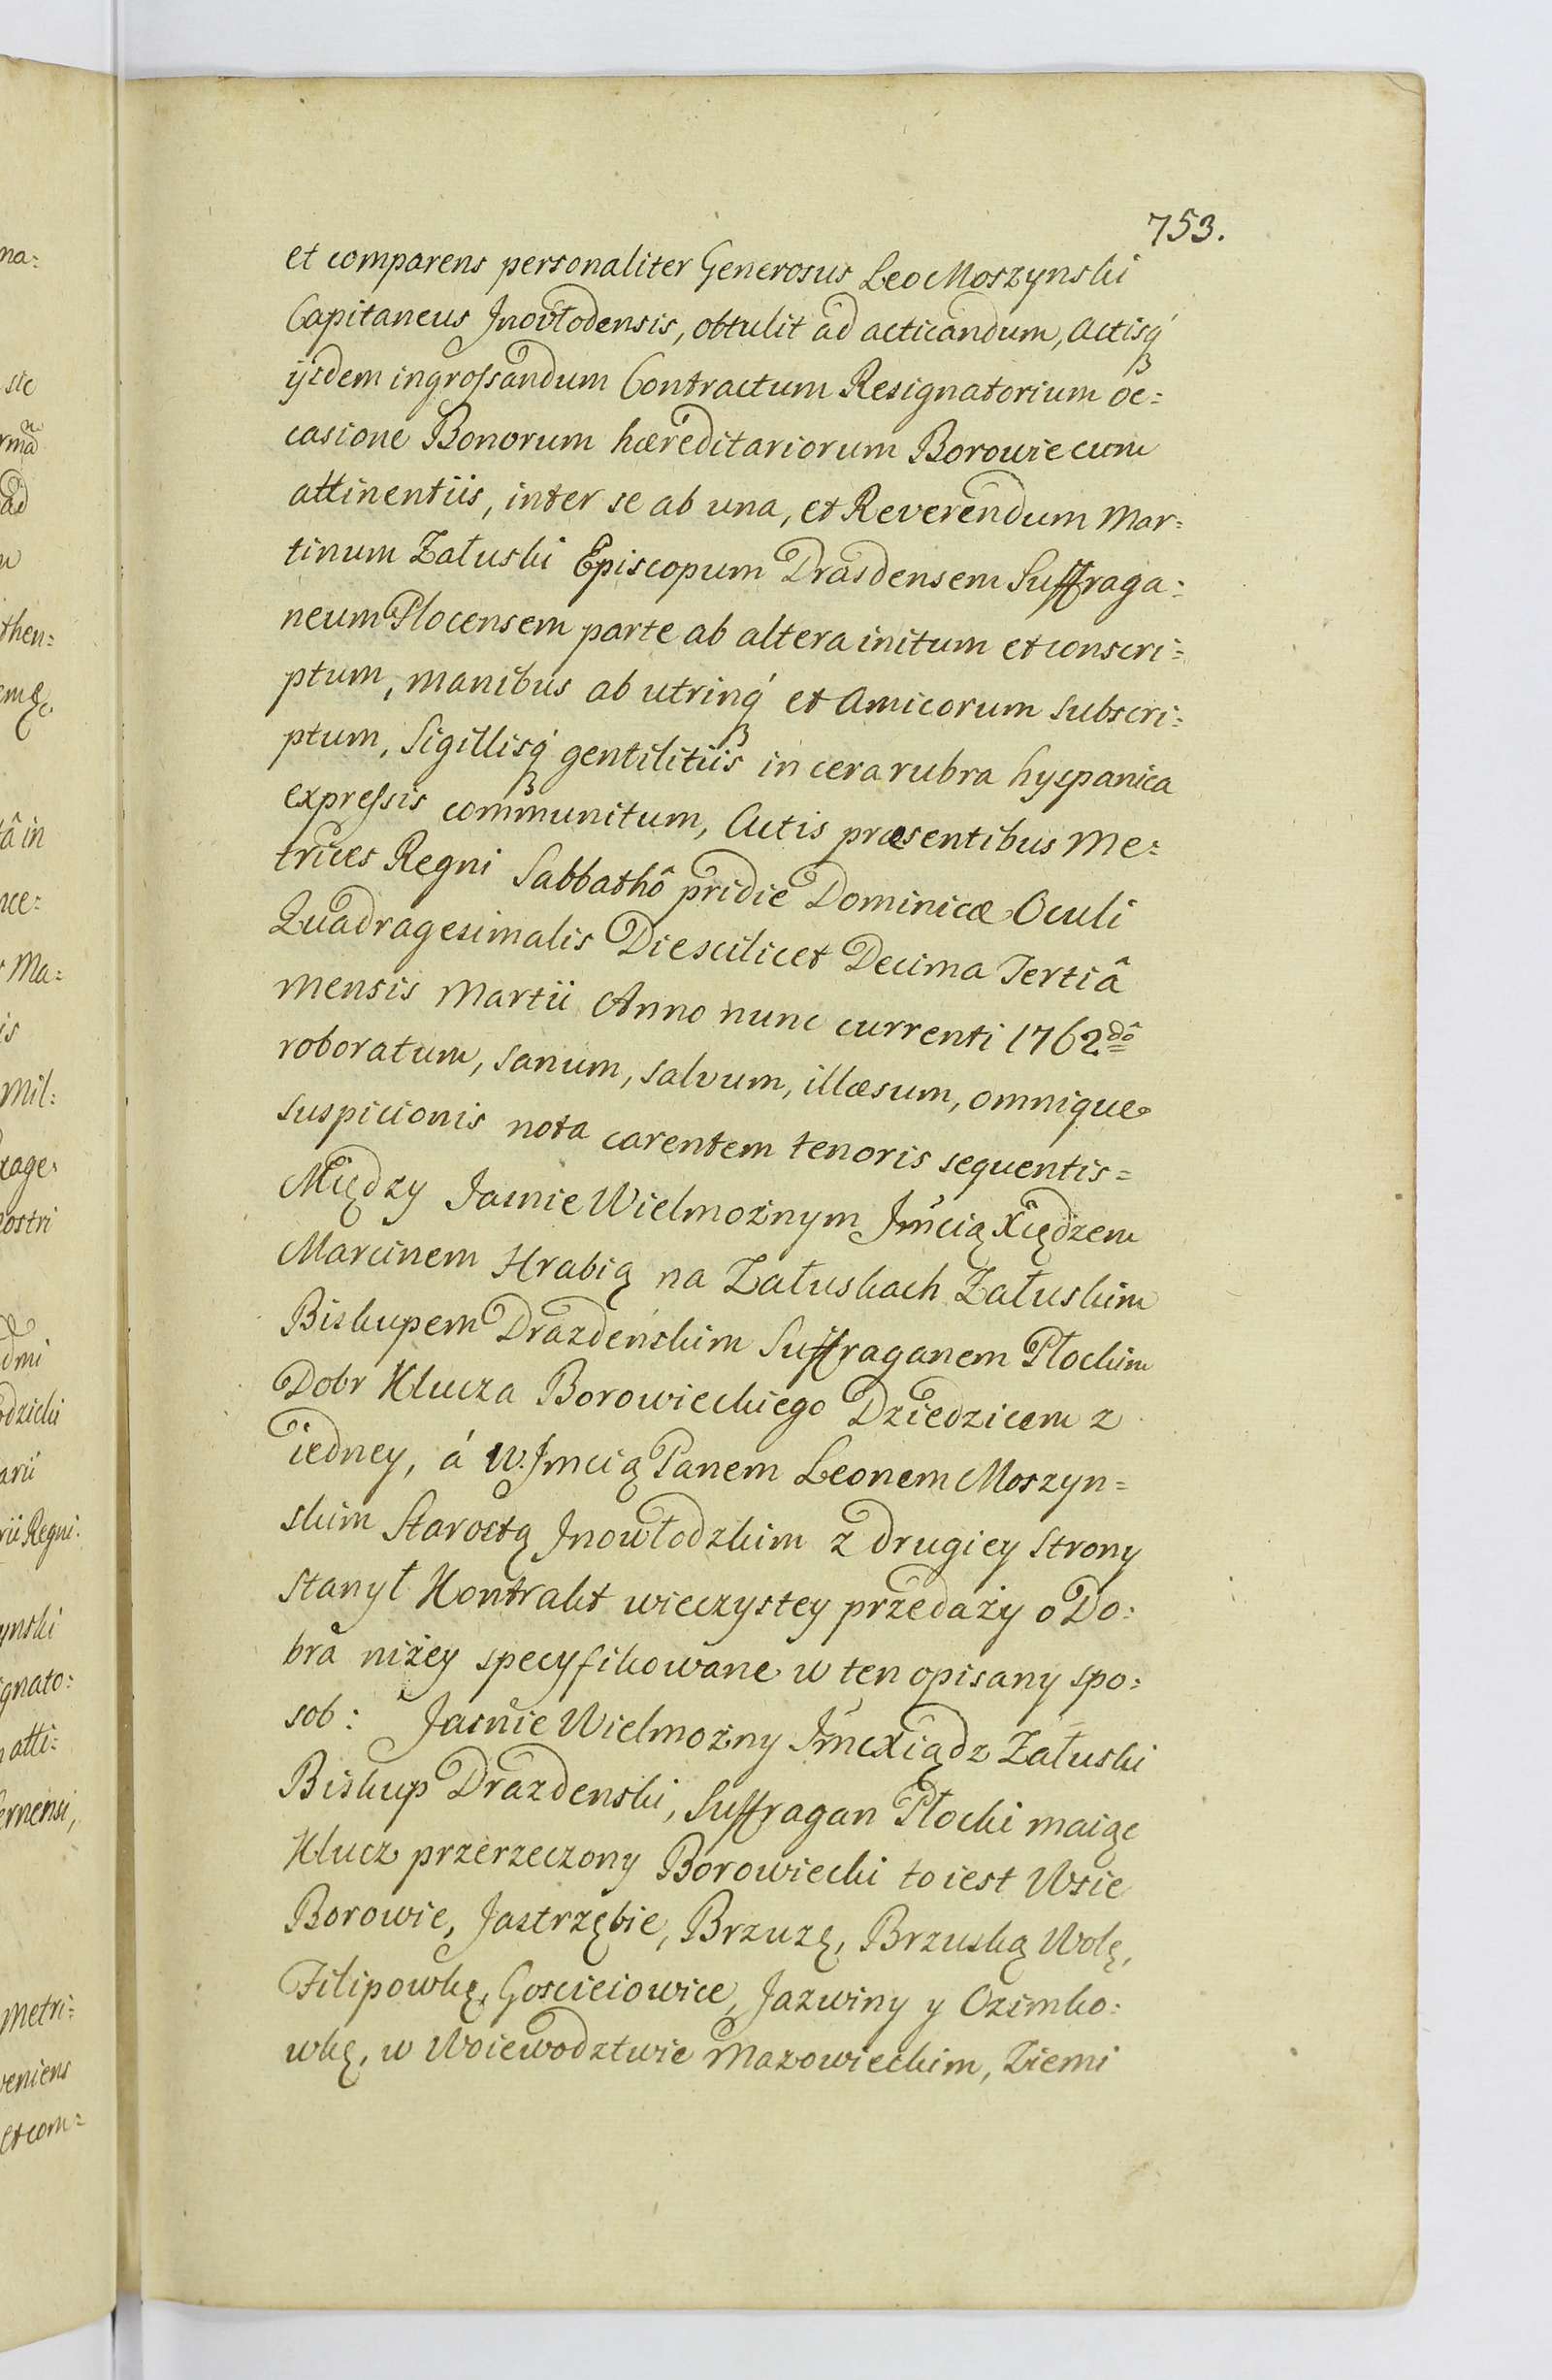 753.
et comparens personaliter Generosus Leo Moszynski
Capitaneus Jnovłodensis, obtulit ad acticandum, Actisq́ꝫ
ijsdem ingrossandum Contractum Resignatorium oc=
casione Bonorum hæreditariorum Borowie cum
attinentiis, inter se ab una, et Reverendum Mar=
tinum Załuski Episcopum Drasdensem Suffraga=
neum Plocensem parte ab altera initum et conscri=
ptum, manibus ab utrinq́ꝫ et Amicorum subscri=
ptum, Sigillisq́ꝫ gentilitiis in cera rubra hyspanica
expressis communitum, Actis præsentibus Me=
trices Regni Sabbathô pridie Dominicæ Oculi
Quadragesimalis Die scilicet Decima Tertiâ
mensis Martii Anno nunc currenti 1762dô
roboratum, sanum, salvum, illæsum, omnique
suspicionis nota carentem tenoris sequentis=
Między Jaśnie Wielmożnym Jmcią Xiędzem
Marcinem Hrabią na Załuskach Załuskim
Biskupem Drazdeńskim Suffraganem Płockim
Dobr Klucza Borowieckiego Dziedzicem z
iedney, á W. Jmcią Panem Leonem Moszyn=
skim Starostą Jnowłodzkim z drugiey strony
stanył Kontrakt wieczystey przedaży o Do=
bra niżey specyfikowane w ten opisany spo=
sob: Jaśnie Wielmożny Jmc Xiądz Załuski
Biskup Drazdenski, Suffragan Płocki maiąc
Klucz przerzeczony Borowiecki to iest Wsie
Borowie, Jastrzębie, Brzuzę, Brzuską Wolę,
Filipowkę, Gościeiowice, Jazwiny y Ozimko=
wkę, w Woiewodztwie Mazowieckim, Ziemi